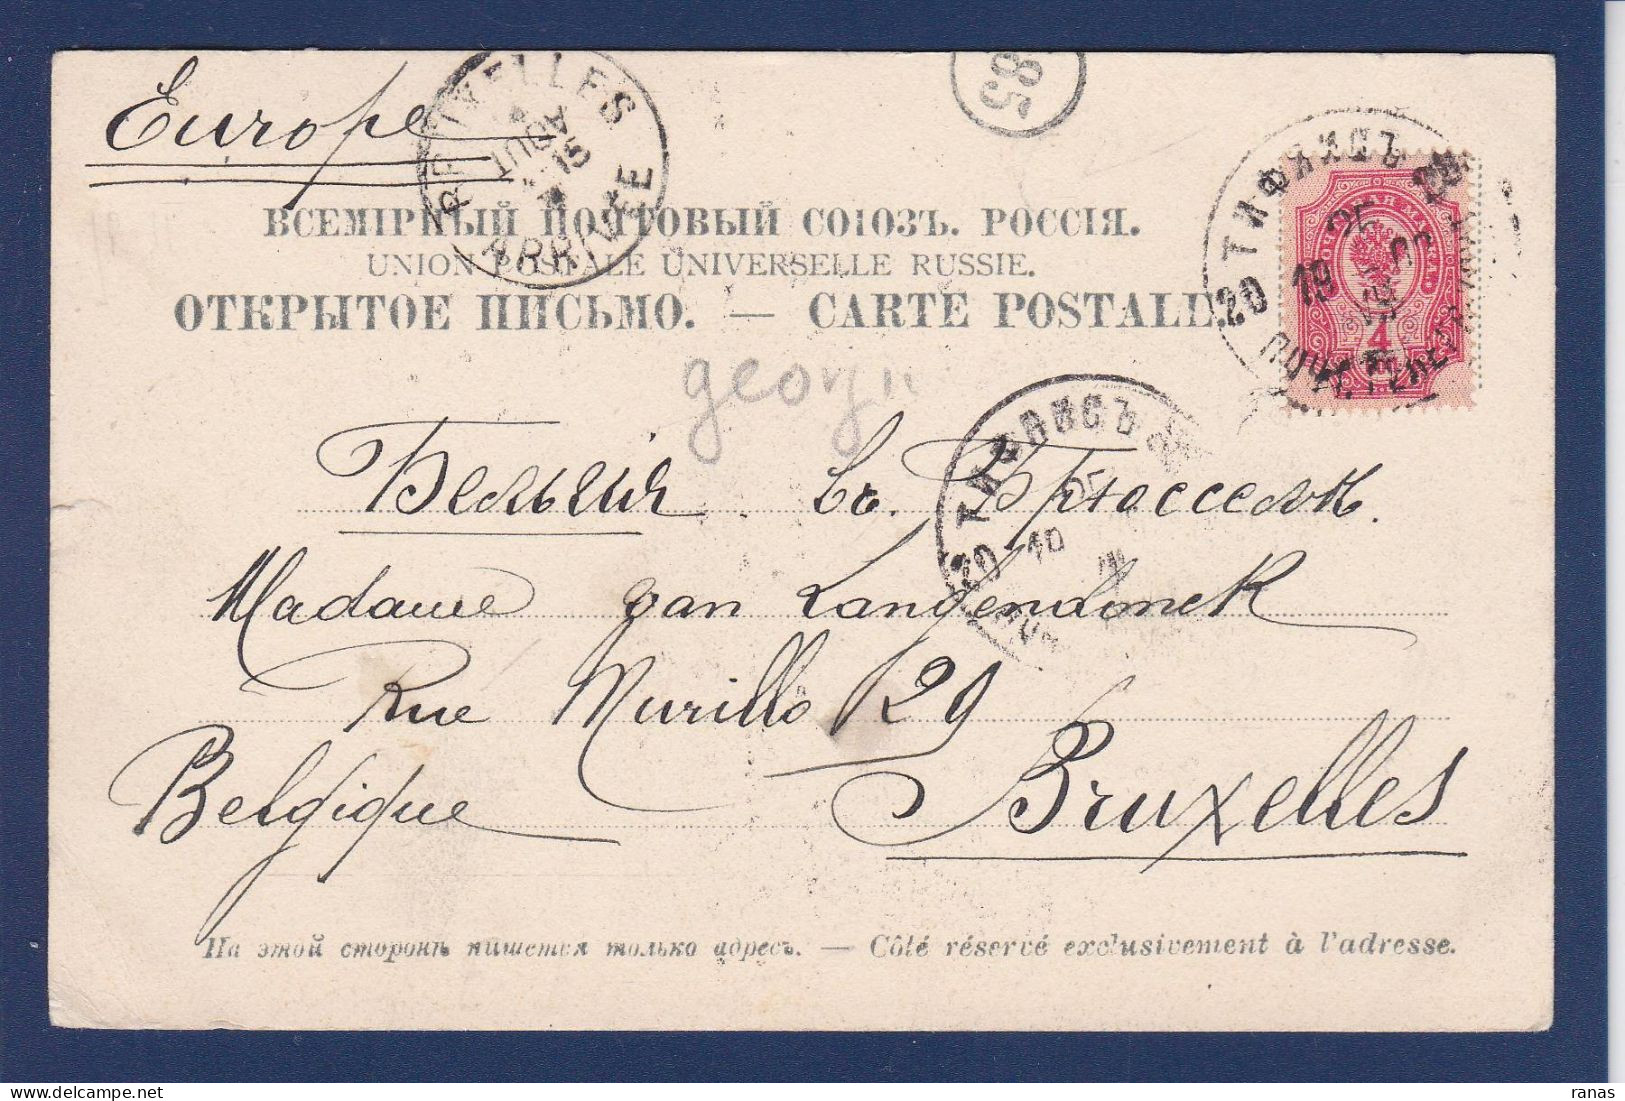 Europe
85
BRUXELLES
15 AOUT
ARRIVÉE
ВСЕМІРНЫЙ ПОЧТОВЫЙ СОЮЗЪ. РОССІЯ.
UNION POSTALE UNIVERSELLE RUSSIE.
ОТКРЫТОЕ ПИСЬМО. — CARTE POSTALE.
ТИФЛИСЪ
20 19 25
4
georgi
ТИФЛИСЪ
Бельгія. въ Брюссель.
Madame van Langendonck
Rue Murillo 29
Belgique Bruxelles
На этой сторонѣ пишется только адресъ. — Côté réservé exclusivement à l'adresse.
ranas